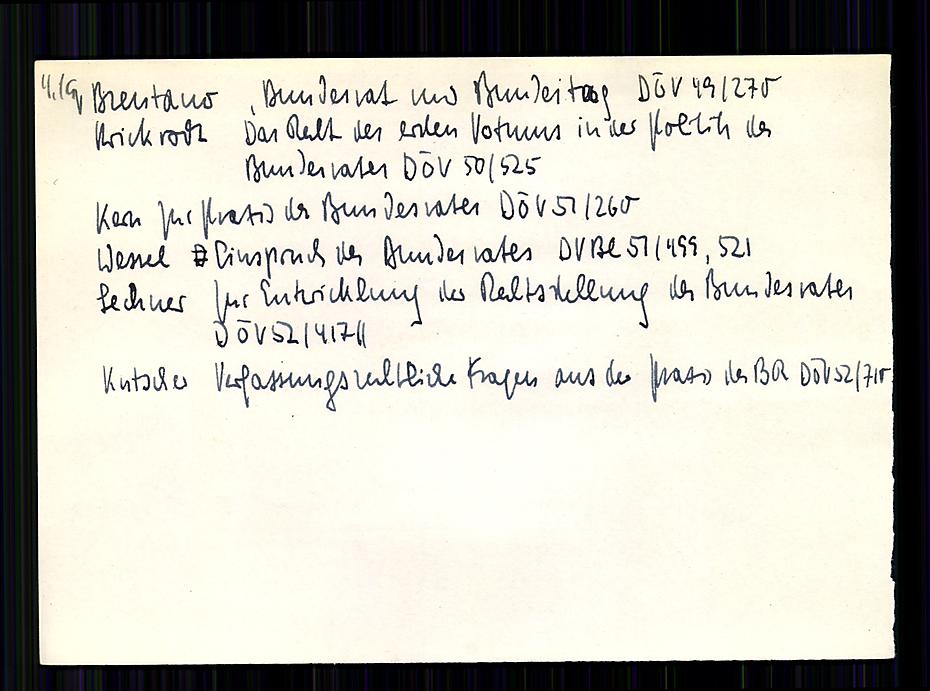 v Brentano Bundesrat und Bundestag DÖV 49/270
Das Recht des ersten Votums in der Politik des
Bundesrates DÖV 50/525
Kern Zur Praxis des Bundesrates DÖV 51/260
Wessel Einspruch des Bundesrates DVBl 51/499, 521
Lechner Zur Entwicklung der Rechtsstellung des Bundesrates
DÖV 52/417ff
Kutscher Verfassungsrechtliche Fragen aus der Praxis des BR DÖV 52/710